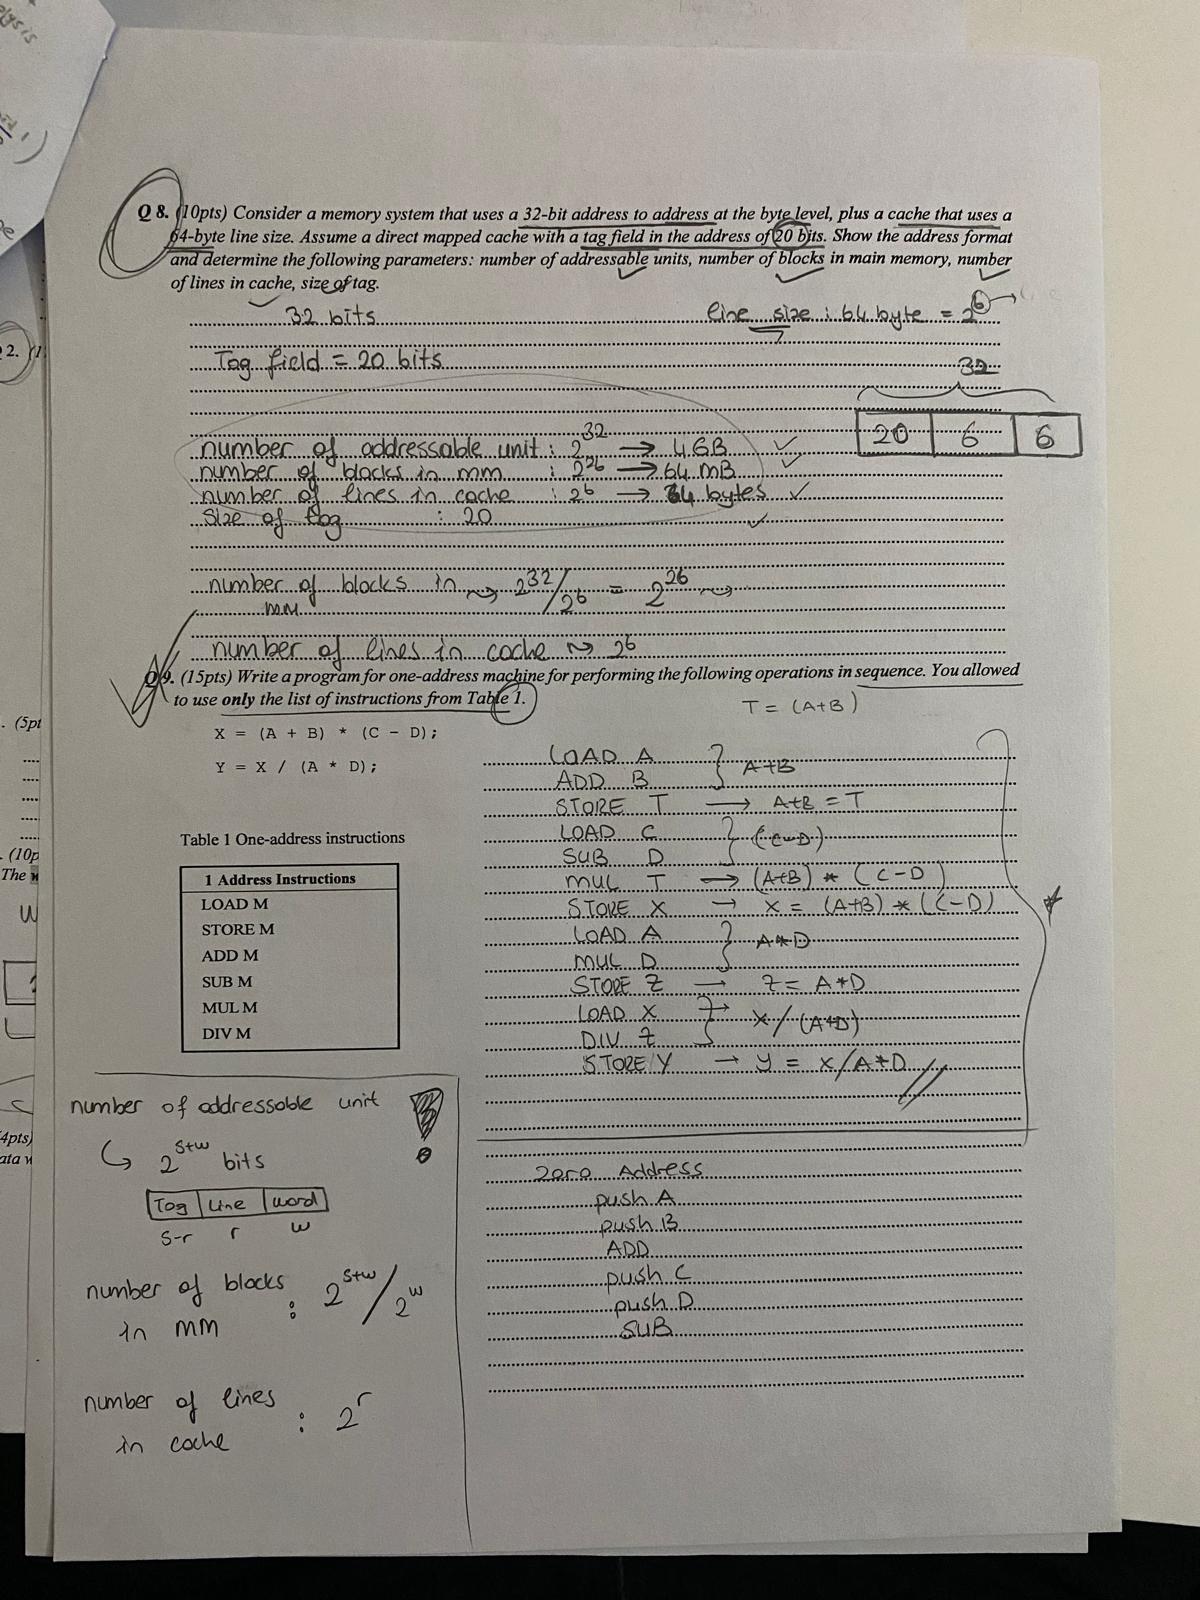 alysis
Q 8. (10pts) Consider a memory system that uses a 32-bit address to address at the byte level, plus a cache that uses a
64-byte line size. Assume a direct mapped cache with a tag field in the address of 20 bits. Show the address format
and determine the following parameters: number of addressable units, number of blocks in main memory, number
of lines in cache, size of tag.
32 bits
line size : 64 byte = 2^6
Tag field = 20 bits
32
20 6 6
number of addressable unit : 2^32 → 4GB
number of blocks in mm : 2^26 → 64 mB
number of lines in cache : 2^6 → 64 bytes
Size of tag : 20
number of blocks in mm 2^32/2^6 = 2^26
number of lines in cache 2^6
Q 9. (15pts) Write a program for one-address machine for performing the following operations in sequence. You allowed
to use only the list of instructions from Table 1.
T = (A+B)
X = (A + B) * (C - D);
Y = X / (A * D);
LOAD A
ADD B
A+B
STORE T → A+B = T
LOAD C
SUB D
(C-D)
MUL T → (A+B) * (C-D)
STORE X → X = (A+B) * (C-D)
LOAD A
MUL D
A*D
STORE Z → Z = A*D
LOAD X
DIV Z
X/(A*D)
STORE Y → Y = X/A*D
Table 1 One-address instructions
1 Address Instructions
LOAD M
STORE M
ADD M
SUB M
MUL M
DIV M
number of addressable unit
2^s+w bits
Tag Line word
s-r r w
number of blocks in mm : 2^s+w / 2^w
number of lines in cache : 2^r
zero Address
push A
push B
ADD
push C
push D
SUB
2.
(5pt
(10p
The
4pts)